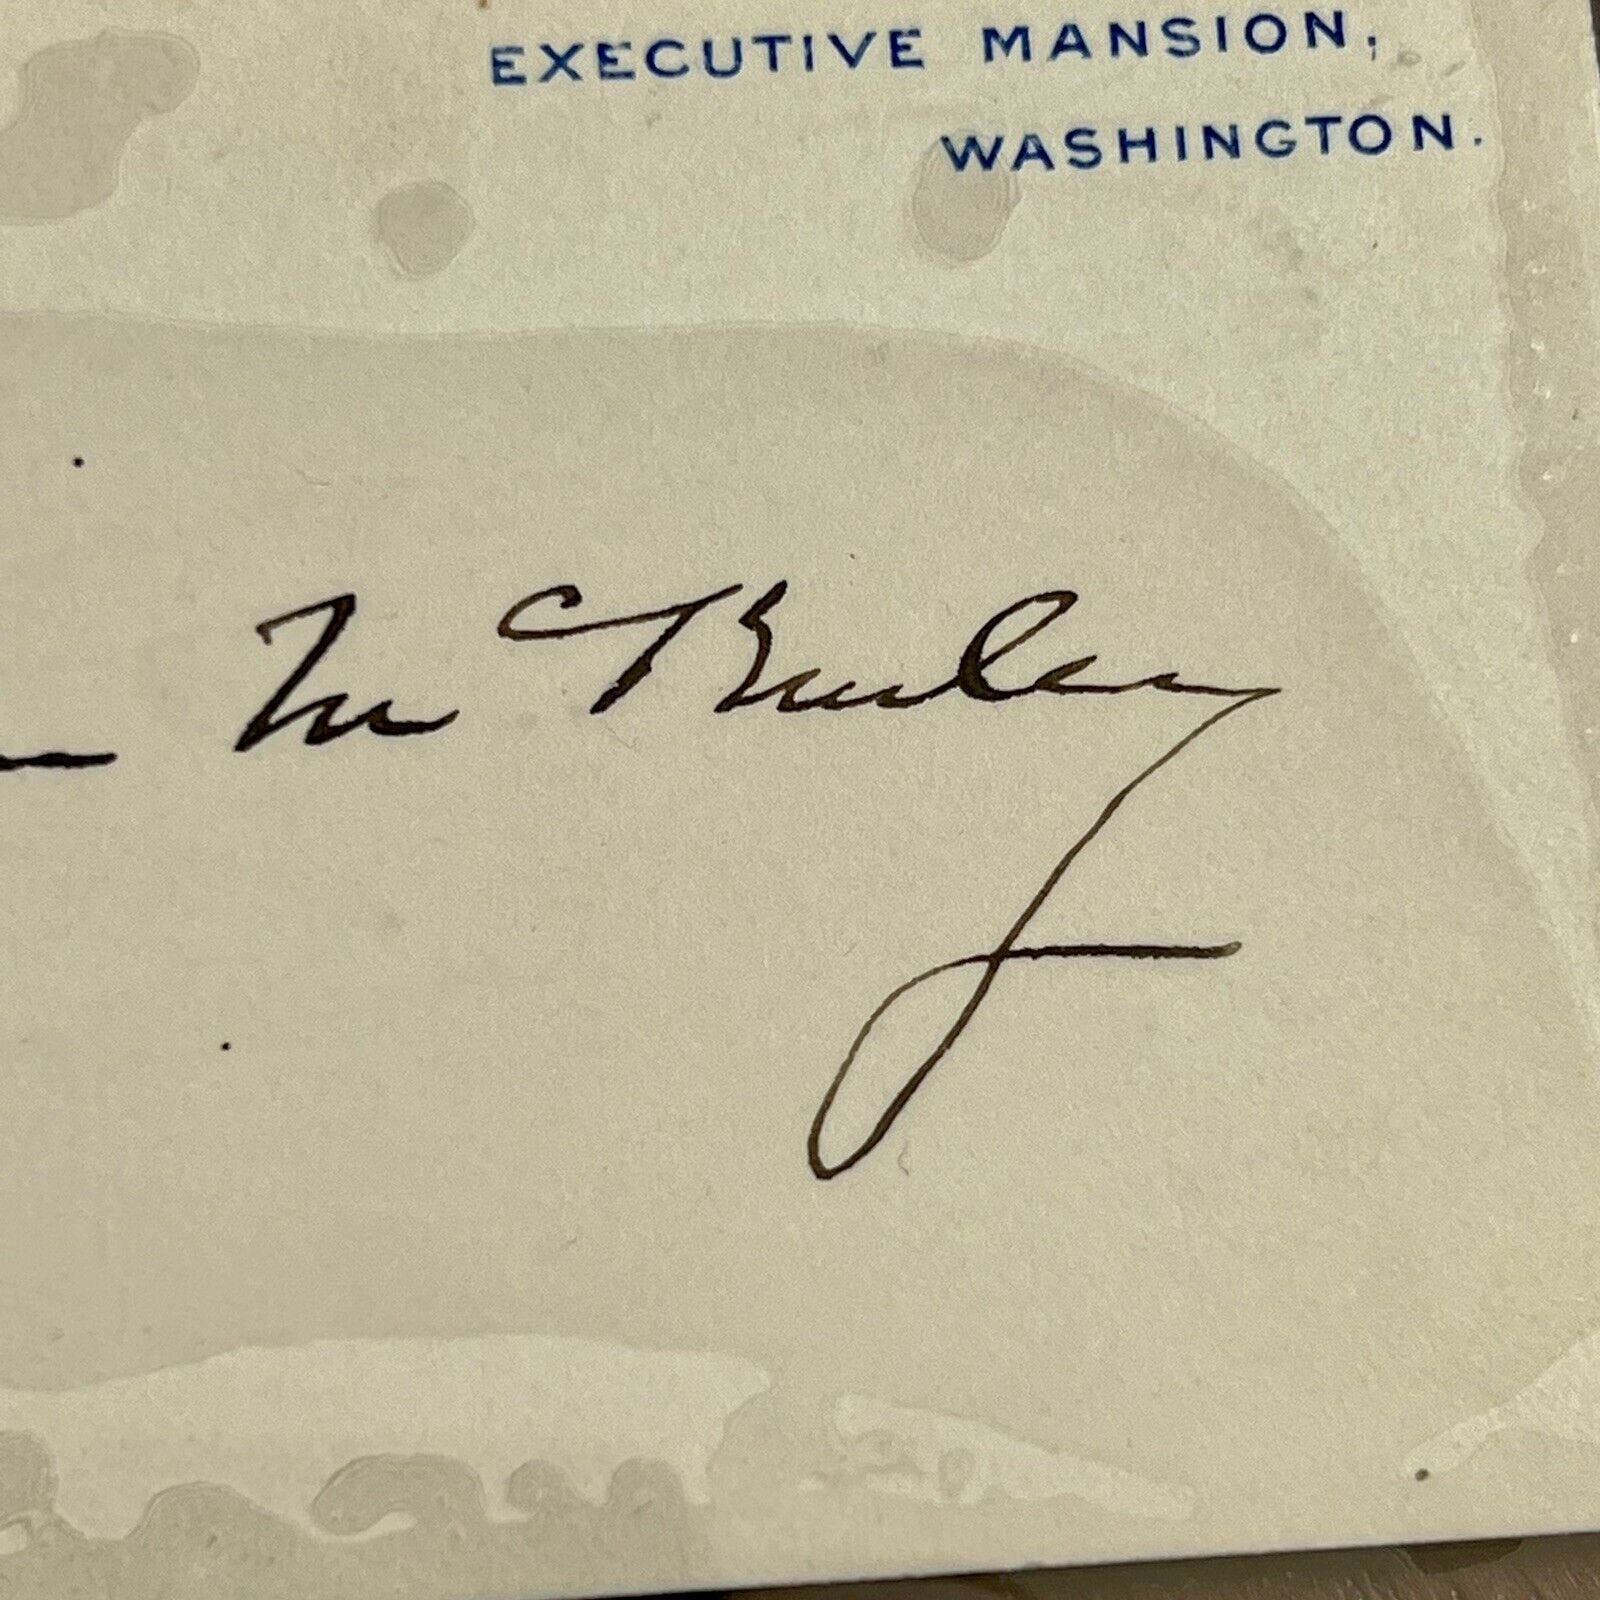 EXECUTIVE MANSION,
WASHINGTON.
McKinley